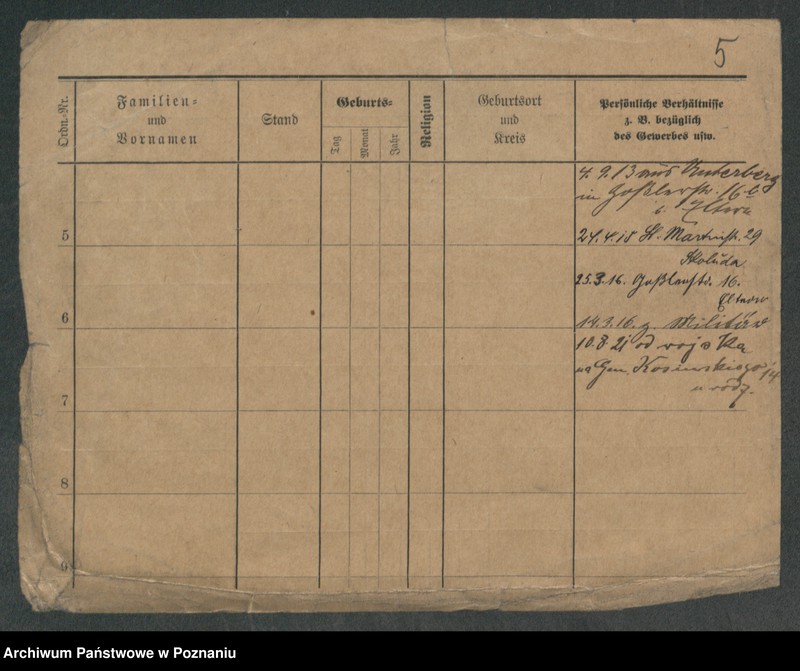 5
Ordn.-Nr.
Familien-
und
Vornamen
Stand
Geburts-
Tag
Monat
Jahr
Religion
Geburtsort
und
Kreis
Persönliche Verhältnisse
z. B. bezüglich
des Gewerbes usw.
4. 9. 13 aus Unterberg
in Goßlerstr. 16
Eltern
5
24. 4. 15 St. Martinstr. 29
Skoluda
25. 3. 16. Goßlerstr. 16.
Eltern
6
14. 3. 16. z. Militär
10. 8. 21 od wojska
na Gen. Kosinskiego 14
u rodz.
7
8
9
Archiwum Państwowe w Poznaniu